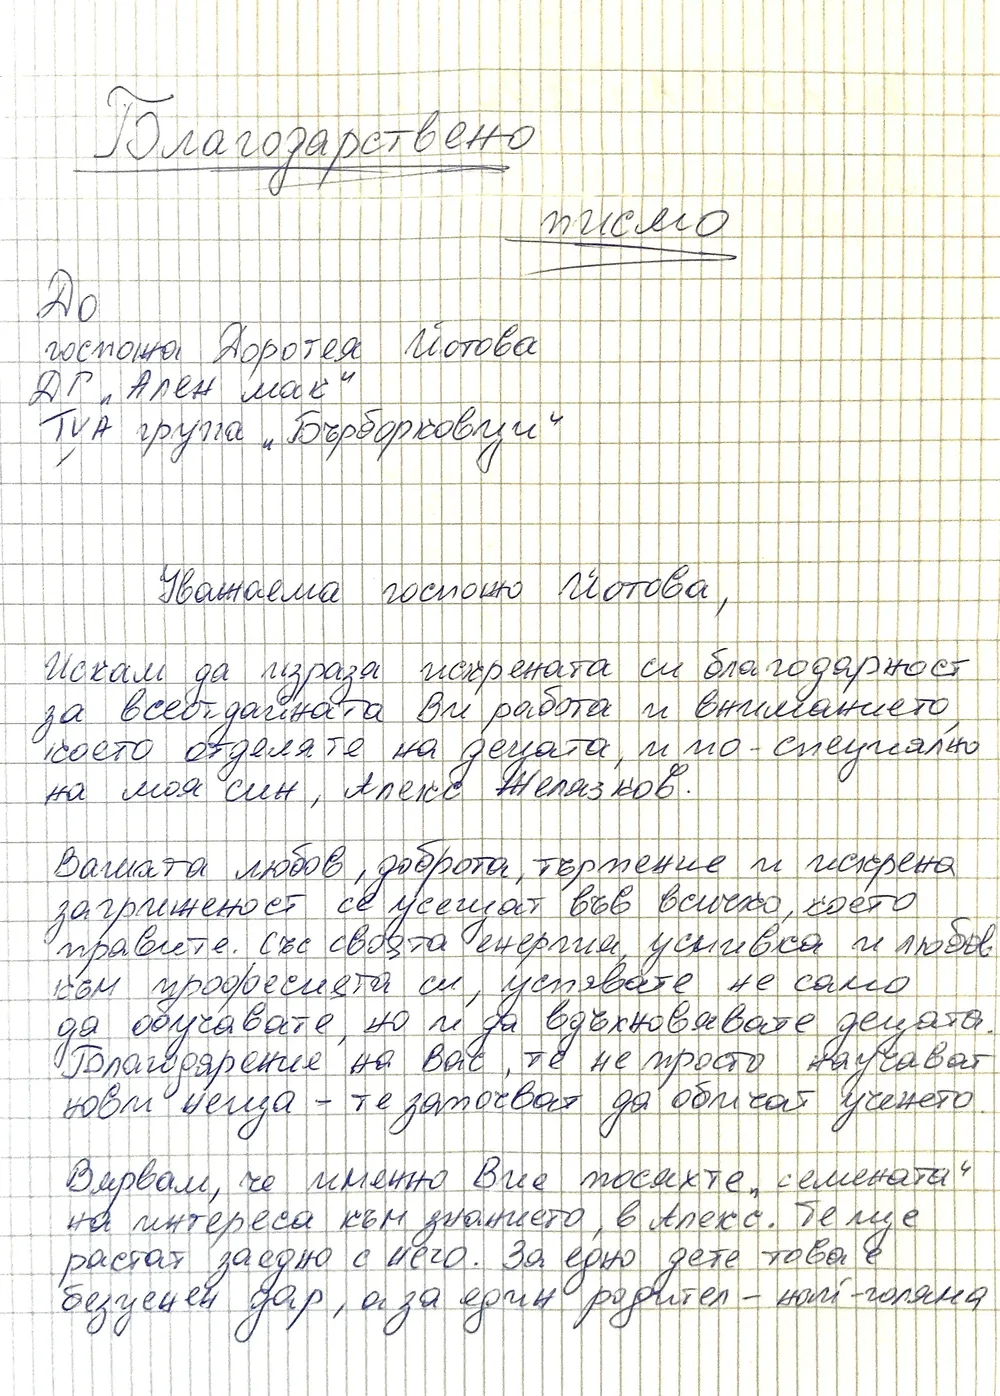 Благодарствено
писмо
До
госпожа Доротея Йотова
ДГ „Ален мак“
IVA група „Бърборковци“
Уважаема госпожо Йотова,
Искам да изразя искрената си благодарност
за всеотдайната Ви работа и вниманието,
което отделяте на децата, и по-специално
на моя син, Алекс Желязков.
Вашата любов, доброта, търпение и искрена
загриженост се усещат във всичко, което
правите. Със своята енергия, усмивка и любов
към професията си, успявате не само
да обучавате, но и да вдъхновявате децата.
Благодарение на Вас, те не просто научават
нови неща – те започват да обичат ученето.
Вярвам, че именно Вие посяхте „семената“
на интереса към знанието, в Алекс. Те ще
растат заедно с него. За едно дете това е
безценен дар, а за един родител – най-голяма